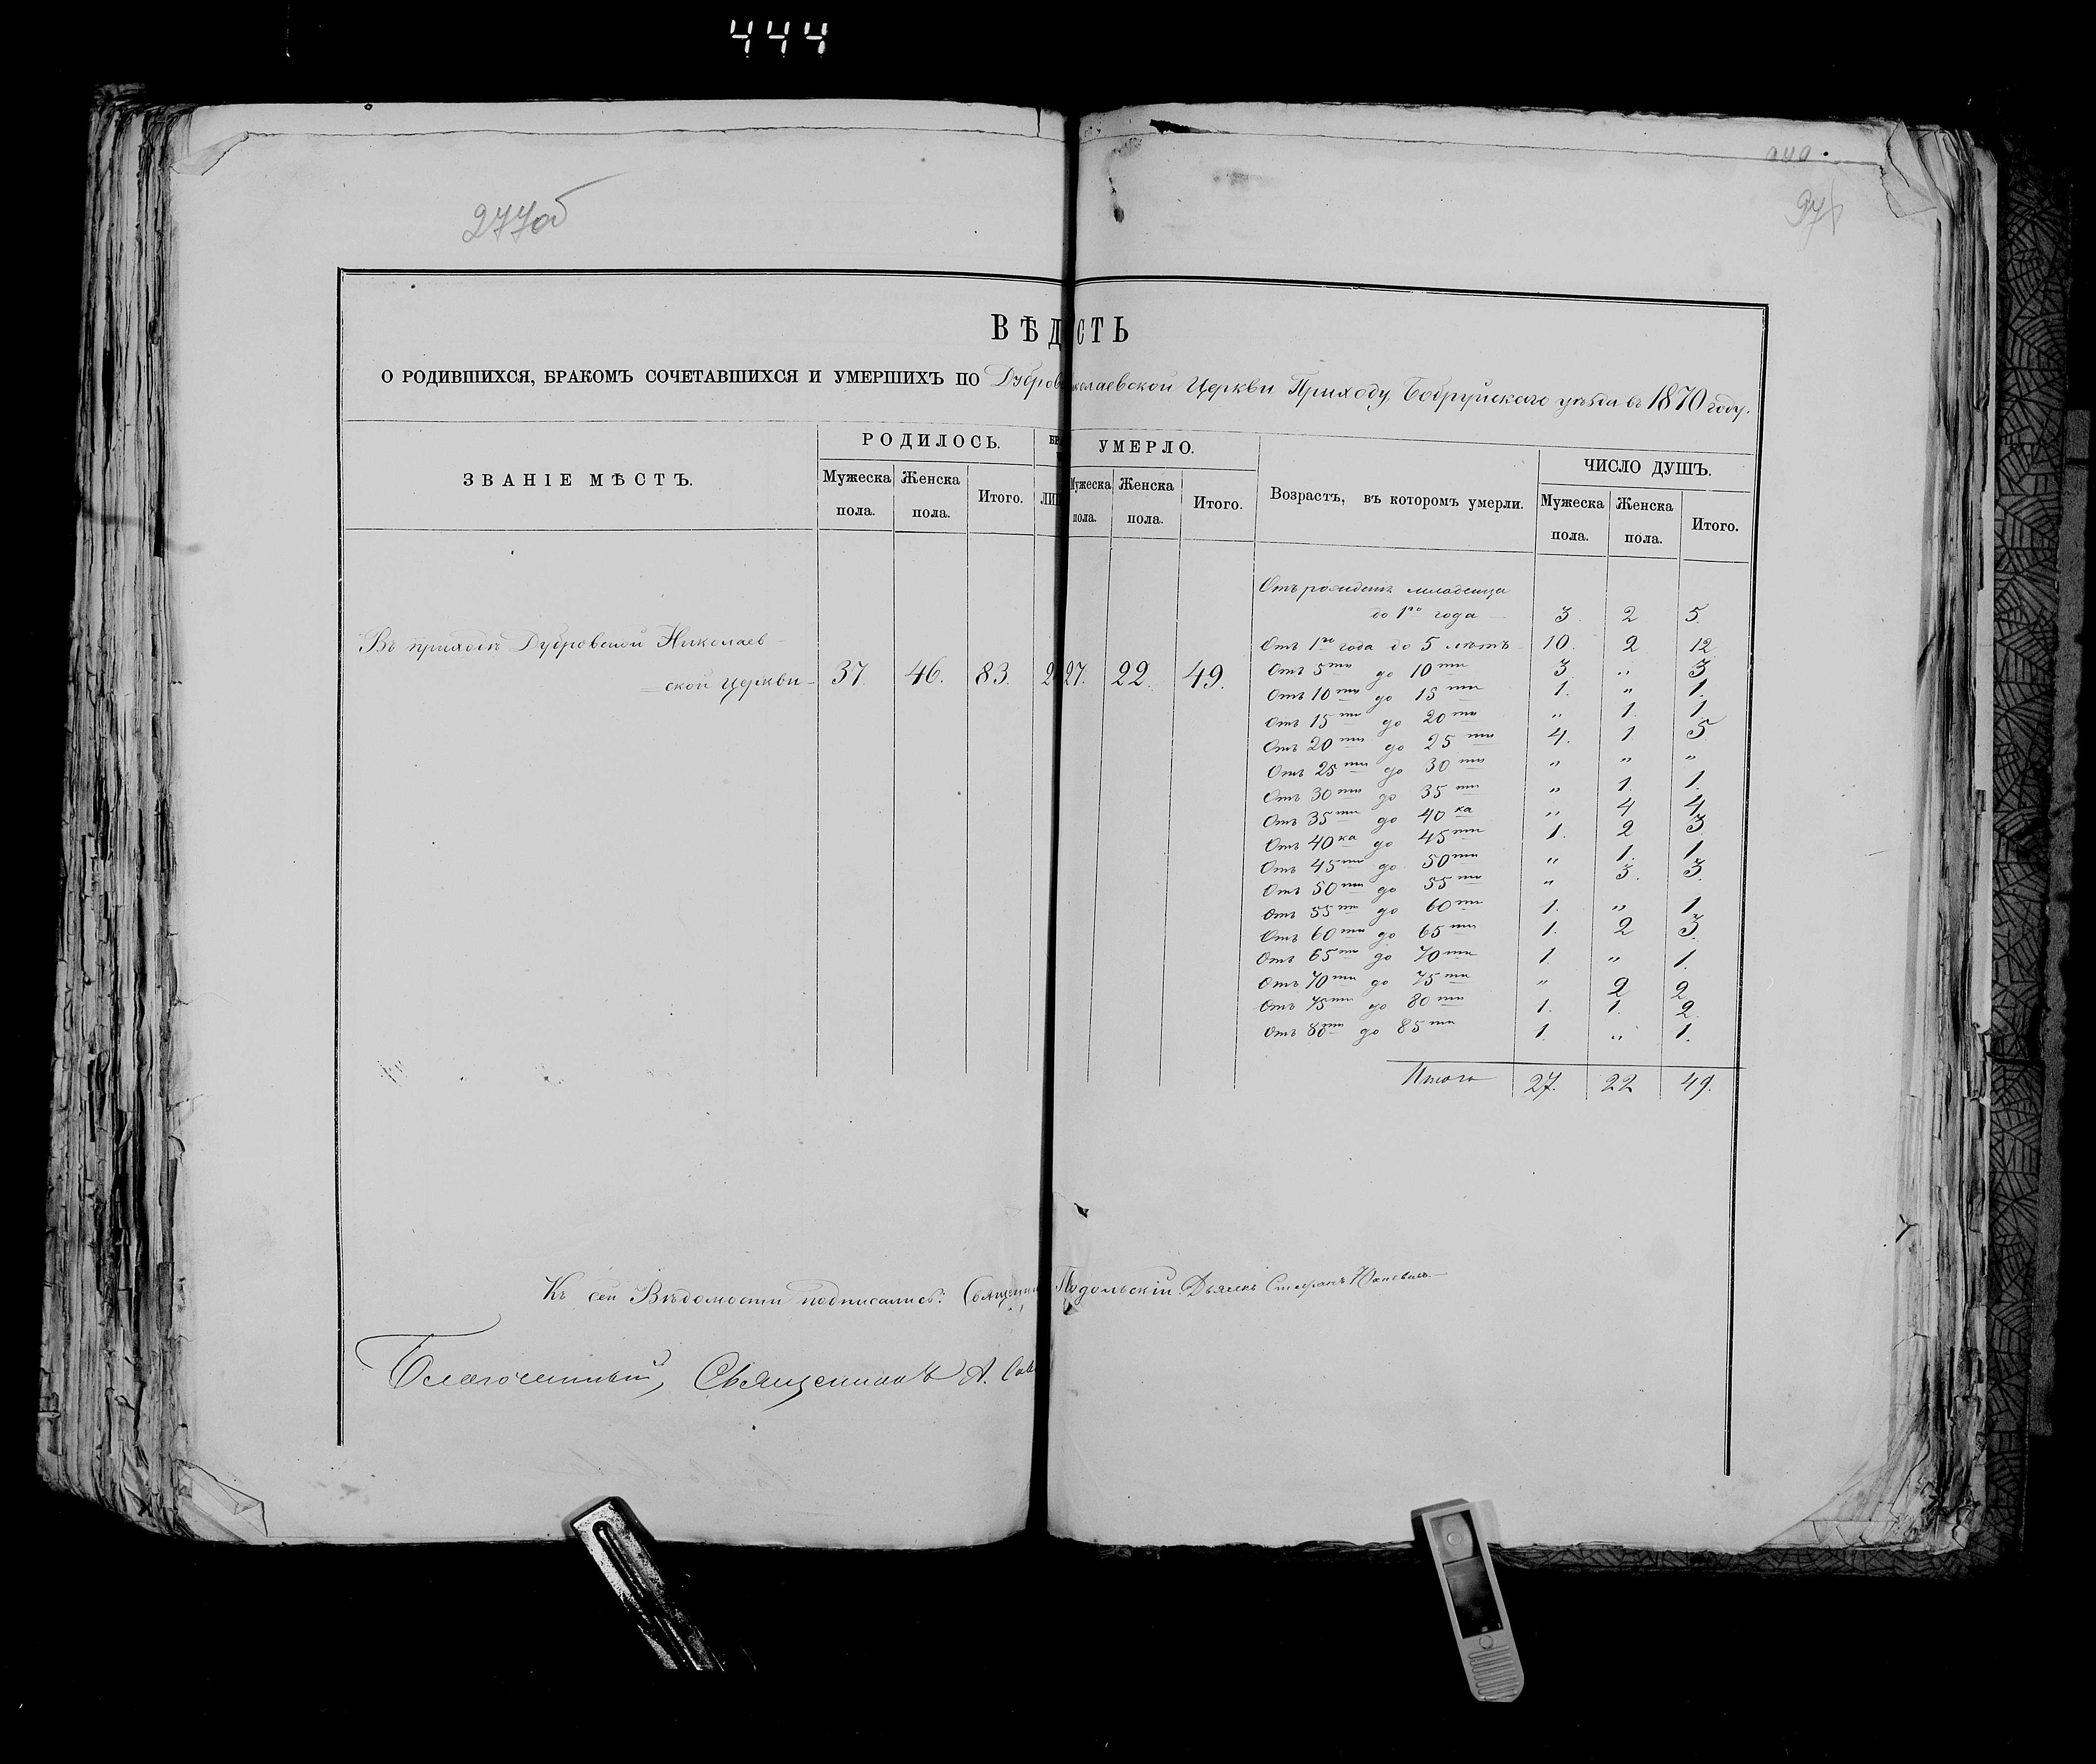 444
277об
ВѢД СТЬ
О РОДИВШИХСЯ, БРАКОМЪ СОЧЕТАВШИХСЯ И УМЕРШИХЪ ПО Дубров колаевской Церкви Приходу, Бобруйскаго уѣзда въ 1870 году.
ЗВАНІЕ МѢСТЪ.
РОДИЛОСЬ.
Мужеска пола.
Женска пола.
Итого.
УМЕРЛО.
Мужеска пола.
Женска пола.
Итого.
Возрастъ, въ которомъ умерли.
ЧИСЛО ДУШЪ.
Мужеска пола.
Женска пола.
Итого.
Въ приходѣ Дубровской Николаев-
ской церкви 37. 46. 83. 27. 22. 49.
Отъ рожденія младенца
до 1го года 3. 2 5.
Отъ 1го года до 5 лѣтъ 10. 2 12
Отъ 5ти до 10ти 3. „ 3
Отъ 10ти до 15ти 1. „ 1.
Отъ 15ти до 20ти „ 1. 1.
Отъ 20ти до 25ти 4. 1 5
Отъ 25ти до 30ти „ „ „
Отъ 30ти до 35ти „ 1. 1.
Отъ 35ти до 40ка „ 4 4
Отъ 40ка до 45ти 1. 2 3
Отъ 45ти до 50ти „ 1. 1
Отъ 50ти до 55ти „ 3. 3.
Отъ 55ти до 60ти 1. „ 1
Отъ 60ти до 65ти 1. 2 3.
Отъ 65ти до 70ти 1. „ 1.
Отъ 70ти до 75ти „ 2 2
Отъ 75ти до 80ти 1. 1. 2.
Отъ 80ти до 85ти 1. „ 1.
Итого 27. 22 49.
Къ сей Вѣдомости подписались: Священни Подольскій. Дьячекъ Стефанъ
Благочинный, Священникъ А.